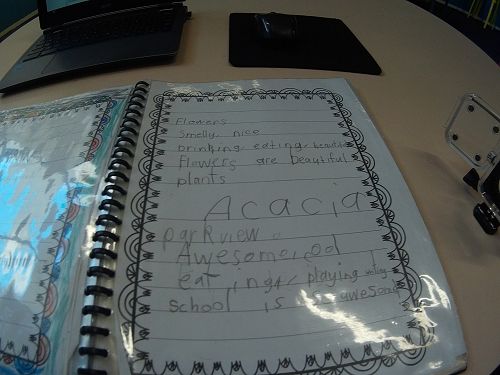 Flowers
Smelly, nice
Drinking, eating, beautiful
Flowers are beautiful
plants
Acacia
parkview
Awesome, od
eating, playing
school is awesome